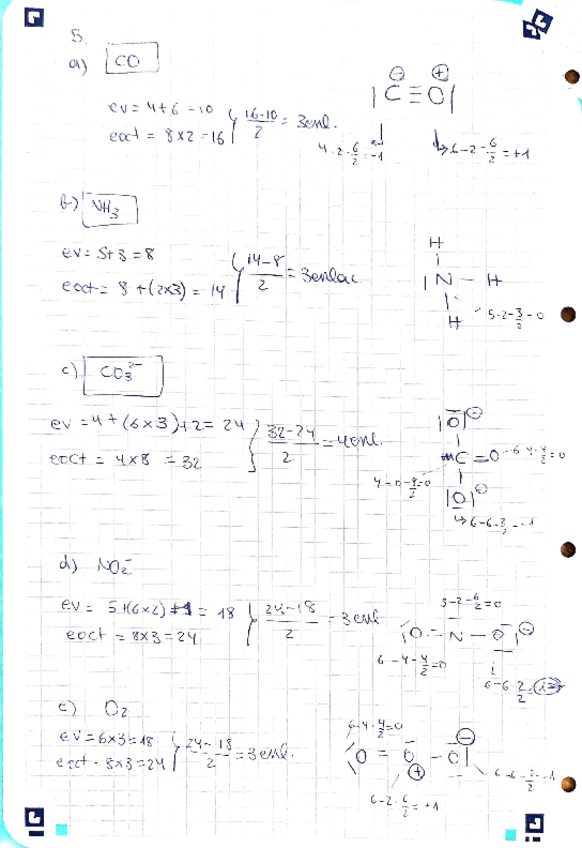 5.
a) CO
ev = 4+6 = 10
eoct = 8x2 = 16
16-10/2 = 3enl.
⊖ ⊕
|C≡O|
4-2-6/2=-1
6-2-6/2=+1
b) NH3
ev = 5+3=8
eoct = 8+(2x3) = 14
14-8/2 = 3enlac
H
|N-H
H
5-2-3/2=0
c) CO3 2-
ev = 4+(6x3)+2= 24
eoct = 4x8 = 32
32-24/2 = 4enl.
|O|⊖
C=O
6-4-4/2=0
4-0-8/2=0
|O|⊖
6-6-2/2=-1
d) NO2-
ev = 5+(6x2)+1 = 18
eoct = 8x3=24
24-18/2 = 3enl
5-2-6/2=0
O=N-O|⊖
6-4-4/2=0
6-6-2/2=
e) O2
ev=6x3=18
eoct = 8x3=24
24-18/2=3enl.
6-4-4/2=0
O=O-O|
⊖
⊕
6-6-2/2=-1
6-2-6/2=+1